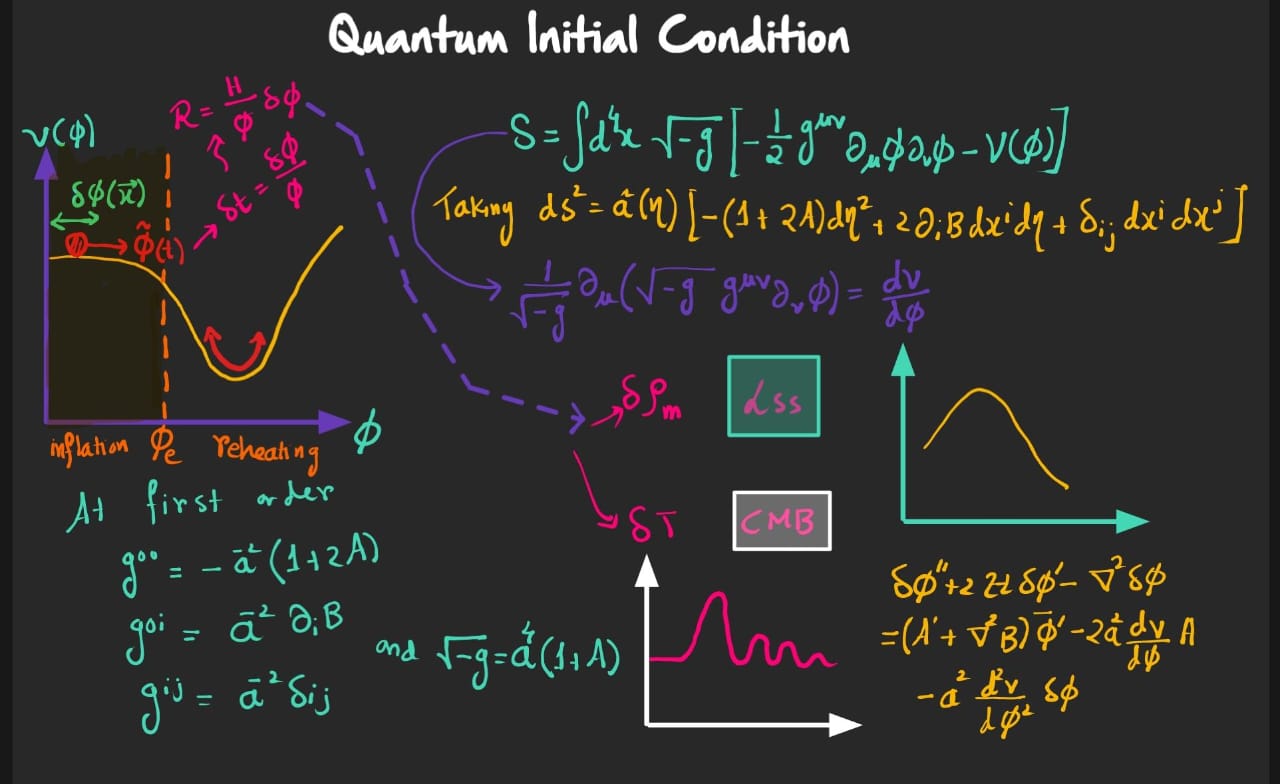 Quantum Initial Condition
R = H/ϕ δϕ
δt = δϕ/ϕ
V(ϕ)
δϕ(x⃗)
ϕ̃(t)
inflation ϕe reheating
ϕ
S = ∫d⁴x √-g [-1/2 g^μν ∂μϕ∂νϕ - V(ϕ)]
Taking ds² = a²(η)[-(1+2A)dη² + 2∂iBdxⁱdη + δij dxⁱ dxʲ]
1/√-g ∂μ(√-g g^μν ∂νϕ) = dv/dϕ
δρm
LSS
δT
CMB
At first order
g⁰⁰ = -a⁻²(1+2A)
g⁰ⁱ = a⁻² ∂iB
gⁱʲ = a⁻² δij
and √-g = a⁴(1+A)
δϕ″+2ℋδϕ′-∇²δϕ
=(A′+∇²B)ϕ̄′-2a² dv/dϕ A
-a² d²v/dϕ² δϕ